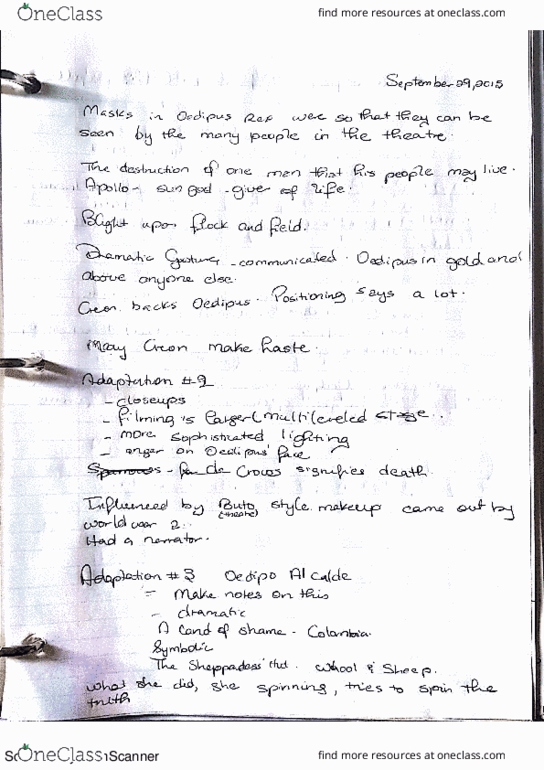 OneClass
find more resources at oneclass.com
September 29, 2015
Masks in Oedipus Rex were so that they can be
seen by the many people in the theatre.
The destruction of one man that his people may live.
Apollo - sun god - give of life.
Blight upon flock and field.
Dramatic - communicated. Oedipus in gold and
above anyone else.
Creon backs Oedipus. Positioning says a lot.
May Creon make haste.
Adaptation #2
- closeups
- filming is larger (multileveled stage...
- more sophisticated lighting
- anger on Oedipus' face
Sparrows - Crows signifies death.
Influenced by Buto style makeup came out by
(theatre)
world war 2.
Had a narrator.
Adaptation #3 Oedipo Alcalde
- Make notes on this
- dramatic
A land of shame - Colombia.
Symbolic
The hut. Whool & Sheep.
what she did, she spinning, tries to spin the
truth
OneClass
Scanner
find more resources at oneclass.com